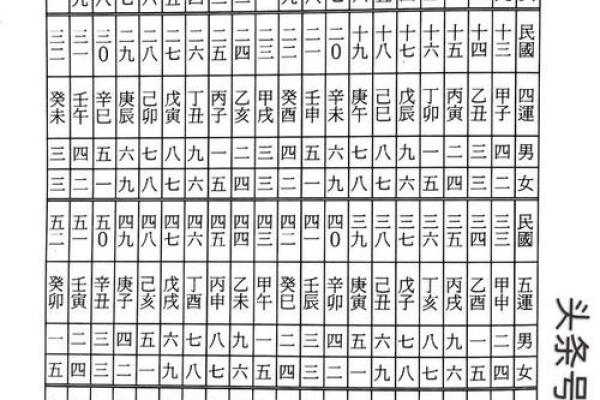 民國 十三 十四 十五 十六 十七 十八 十九 二0 二一 二二 二三 二四 二五 二六 二七 二八 二九 三0 三一 三二
四運 甲子 乙丑 丙寅 丁卯 戊辰 己巳 庚午 辛未 壬申 癸酉 甲戌 乙亥 丙子 丁丑 戊寅 己卯 庚辰 辛巳 壬午 癸未
男 四 三 二 一 九 八 七 六 五 四 三 二 一 九 八 七 六 五 四 三
女 二 三 四 五 六 七 八 九 一 二 三 四 五 六 七 八 九 一 二 三
民國 三三 三四 三五 三六 三七 三八 三九 四0 四一 四二 四三 四四 四五 四六 四七 四八 四九 五0 五一 五二
五運 甲申 乙酉 丙戌 丁亥 戊子 己丑 庚寅 辛卯 壬辰 癸巳 甲午 乙未 丙申 丁酉 戊戌 己亥 庚子 辛丑 壬寅 癸卯
男 二 一 九 八 七 六 五 四 三 二 一 九 八 七 六 五 四 三 二 一
女 四 五 六 七 八 九 一 二 三 四 五 六 七 八 九 一 二 三 四 五
头条号